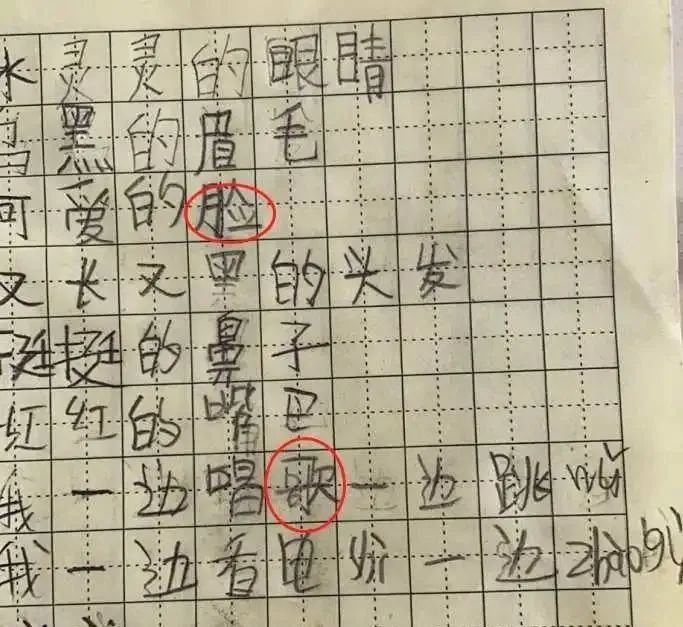 水灵灵的眼睛
乌黑的眉毛
可爱的脸
又长又黑的头发
挺挺的鼻子
红红的嘴巴
我一边唱歌一边跳
我一边看电 一边